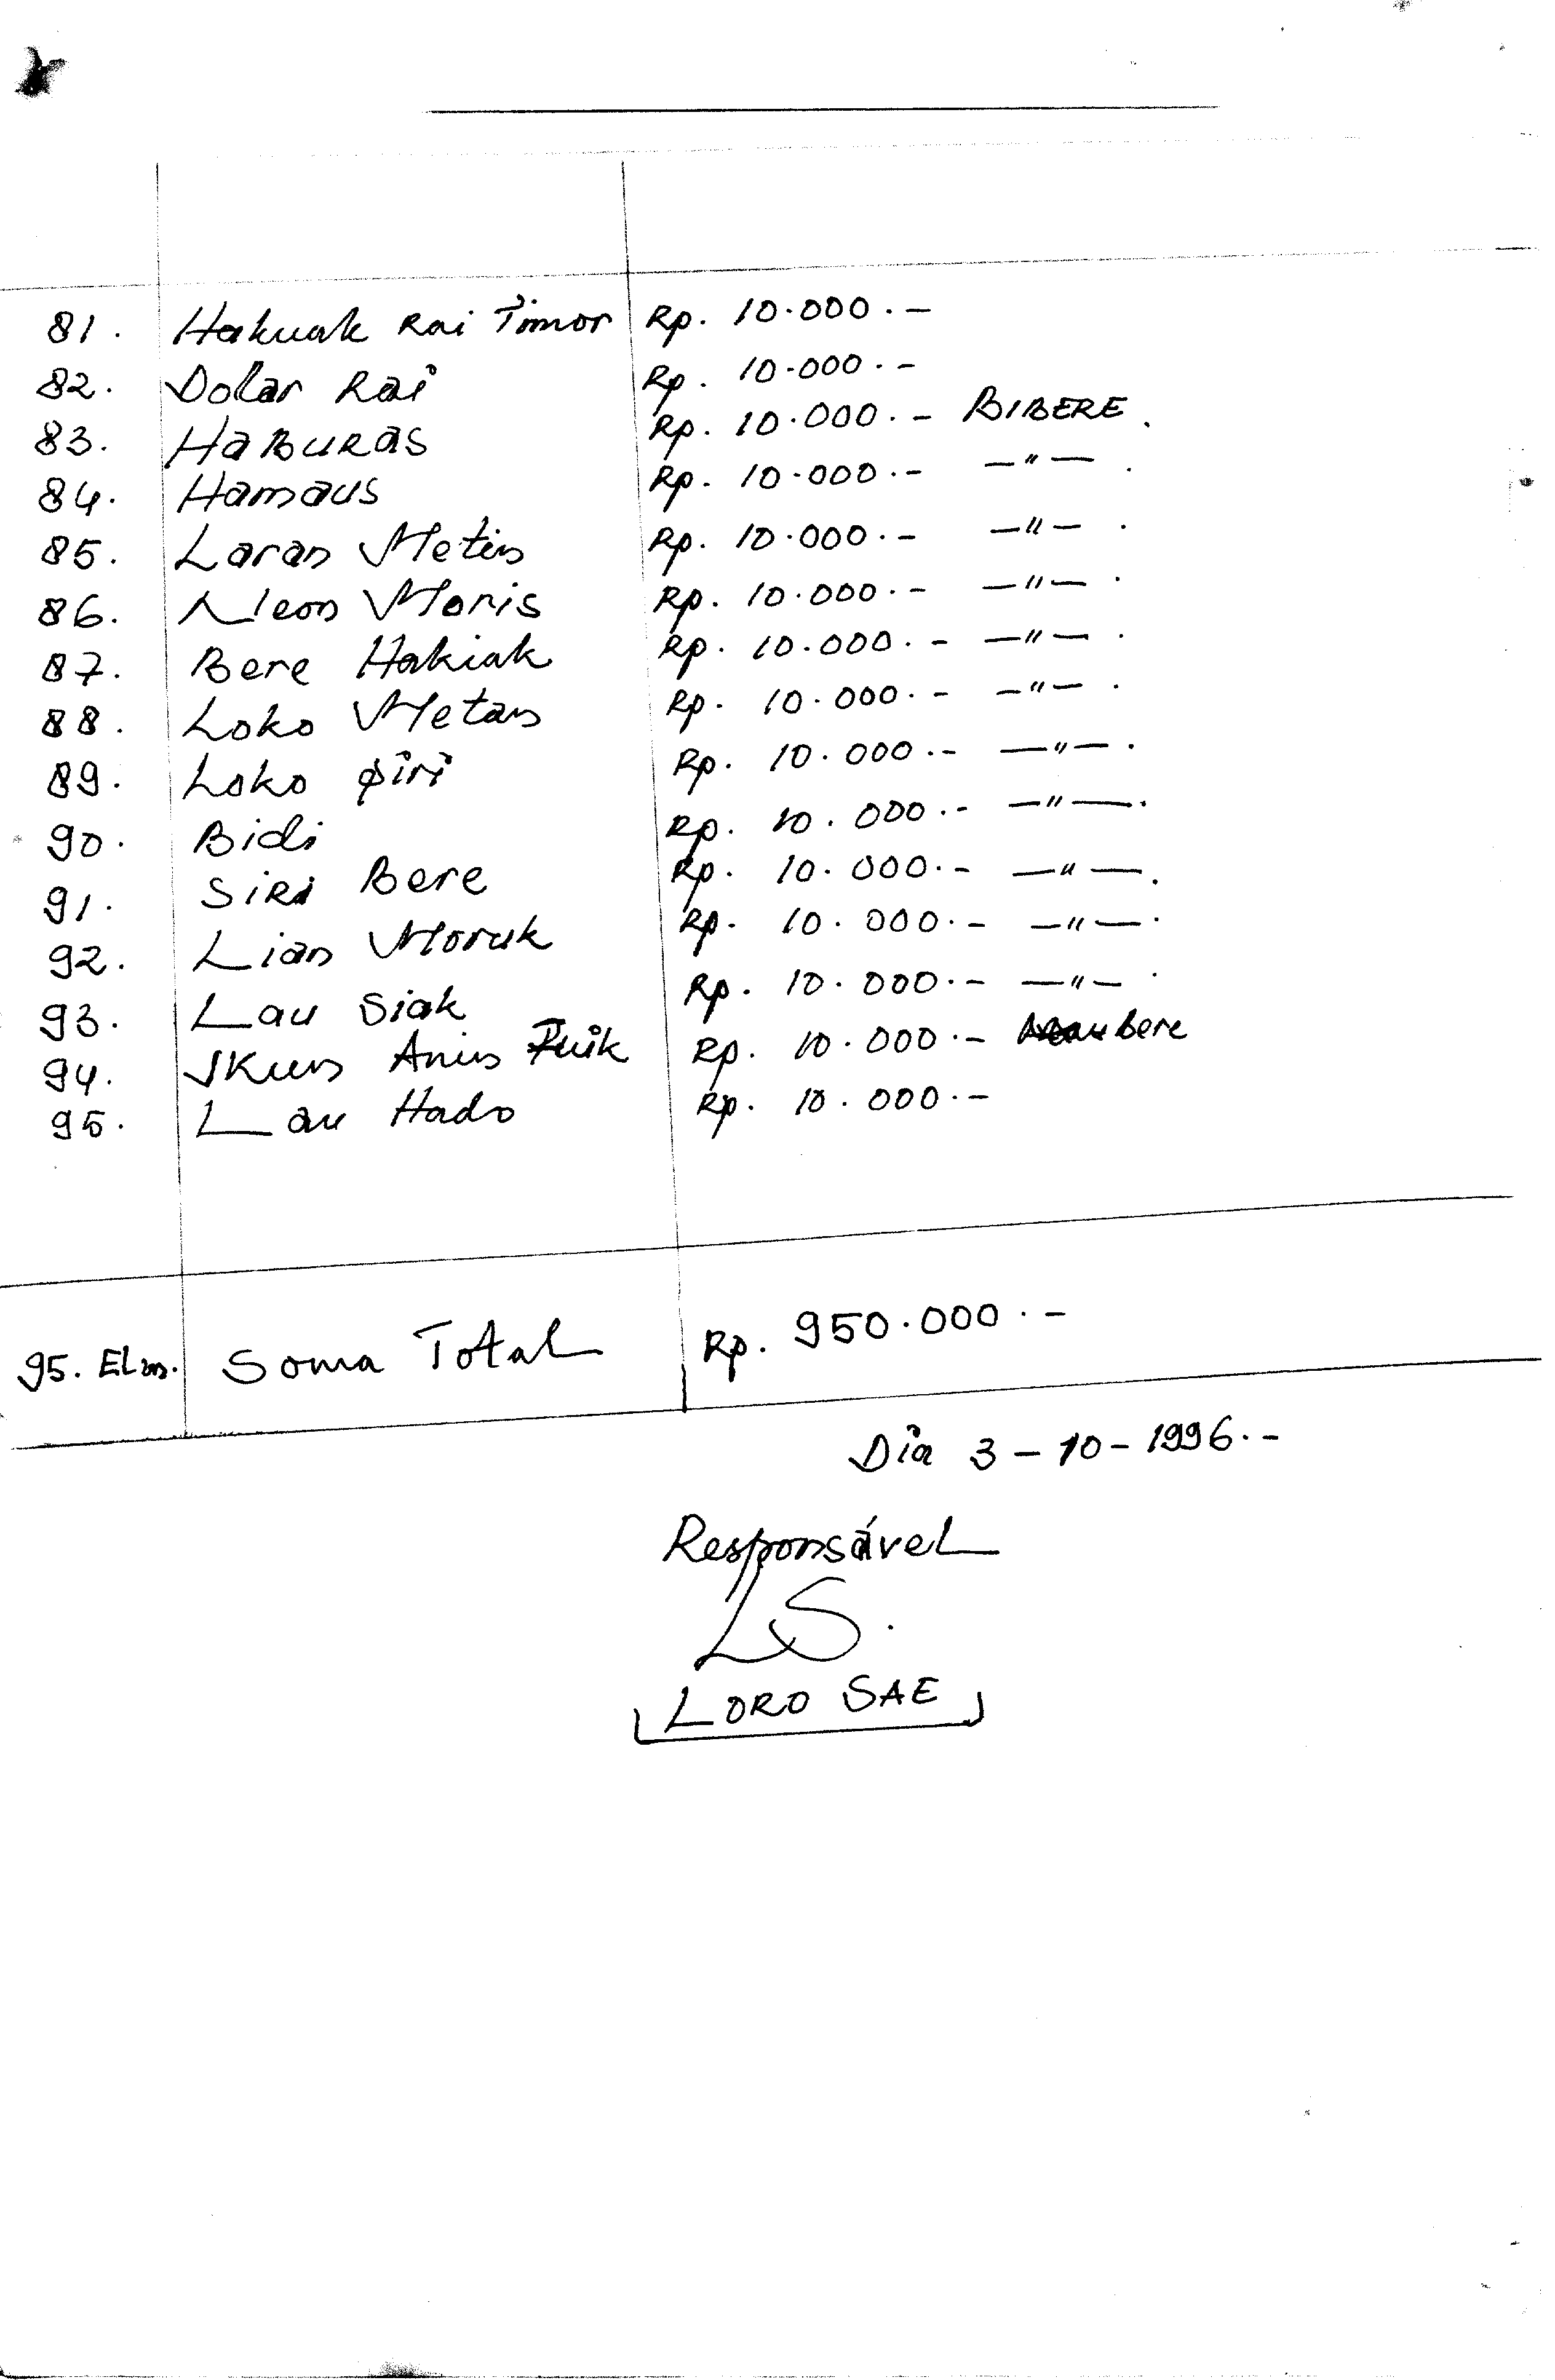 81. Hakuak Rai Timor Rp. 10.000.-
82. Dolar Rai Rp. 10.000.-
83. HaBURas Rp. 10.000.- BIBERE.
84. Hamaus Rp. 10.000.- —"— .
85. Laran Metin Rp. 10.000.- —"— .
86. Neon Moris Rp. 10.000.- —"— .
87. Bere Hakiak Rp. 10.000.- —"— .
88. Loko Metan Rp. 10.000.- —"— .
89. Loko Rp. 10.000.- —"— .
90. Bidi Rp. 10.000.- —"— .
91. Siri Bere Rp. 10.000.- —"— .
92. Lian Moruk Rp. 10.000.- —"— .
93. Lau Siak Rp. 10.000.- —"— .
94. Ikun Anin Fuik Rp. 10.000.- Maubere
95. Lau Hado Rp. 10.000.-
95. Elm. Soma Total Rp. 950.000.-
Dia 3-10-1996.-
Responsável
LS.
LORO SAE